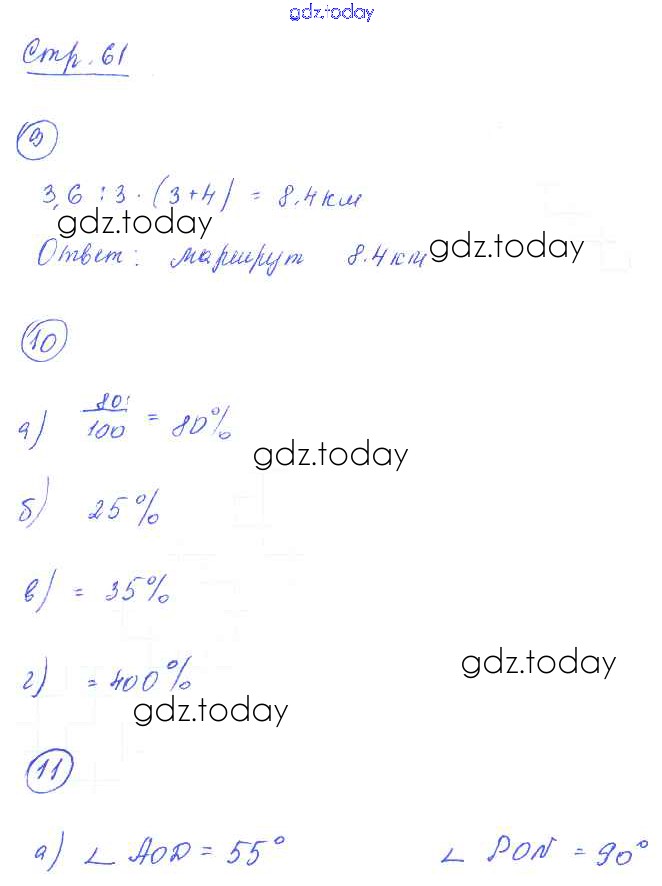 gdz.today
Стр. 61
9
3,6 : 3 · (3+4) = 8.4 км
gdz.today
Ответ: маршрут 8.4 км
gdz.today
10
а) 80/100 = 80%
gdz.today
б) 25%
в) = 35%
gdz.today
г) = 400%
gdz.today
11
а) ∠ AOD = 55° ∠ PON = 90°